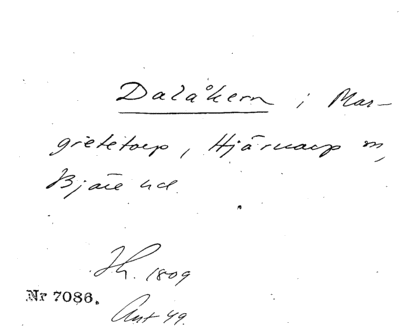 Dalåkern i Mar-
gretetorp, Hjärnarp sn,
Bjäre hd.
Jh. 1809
Nr 7086.
Ant 49.